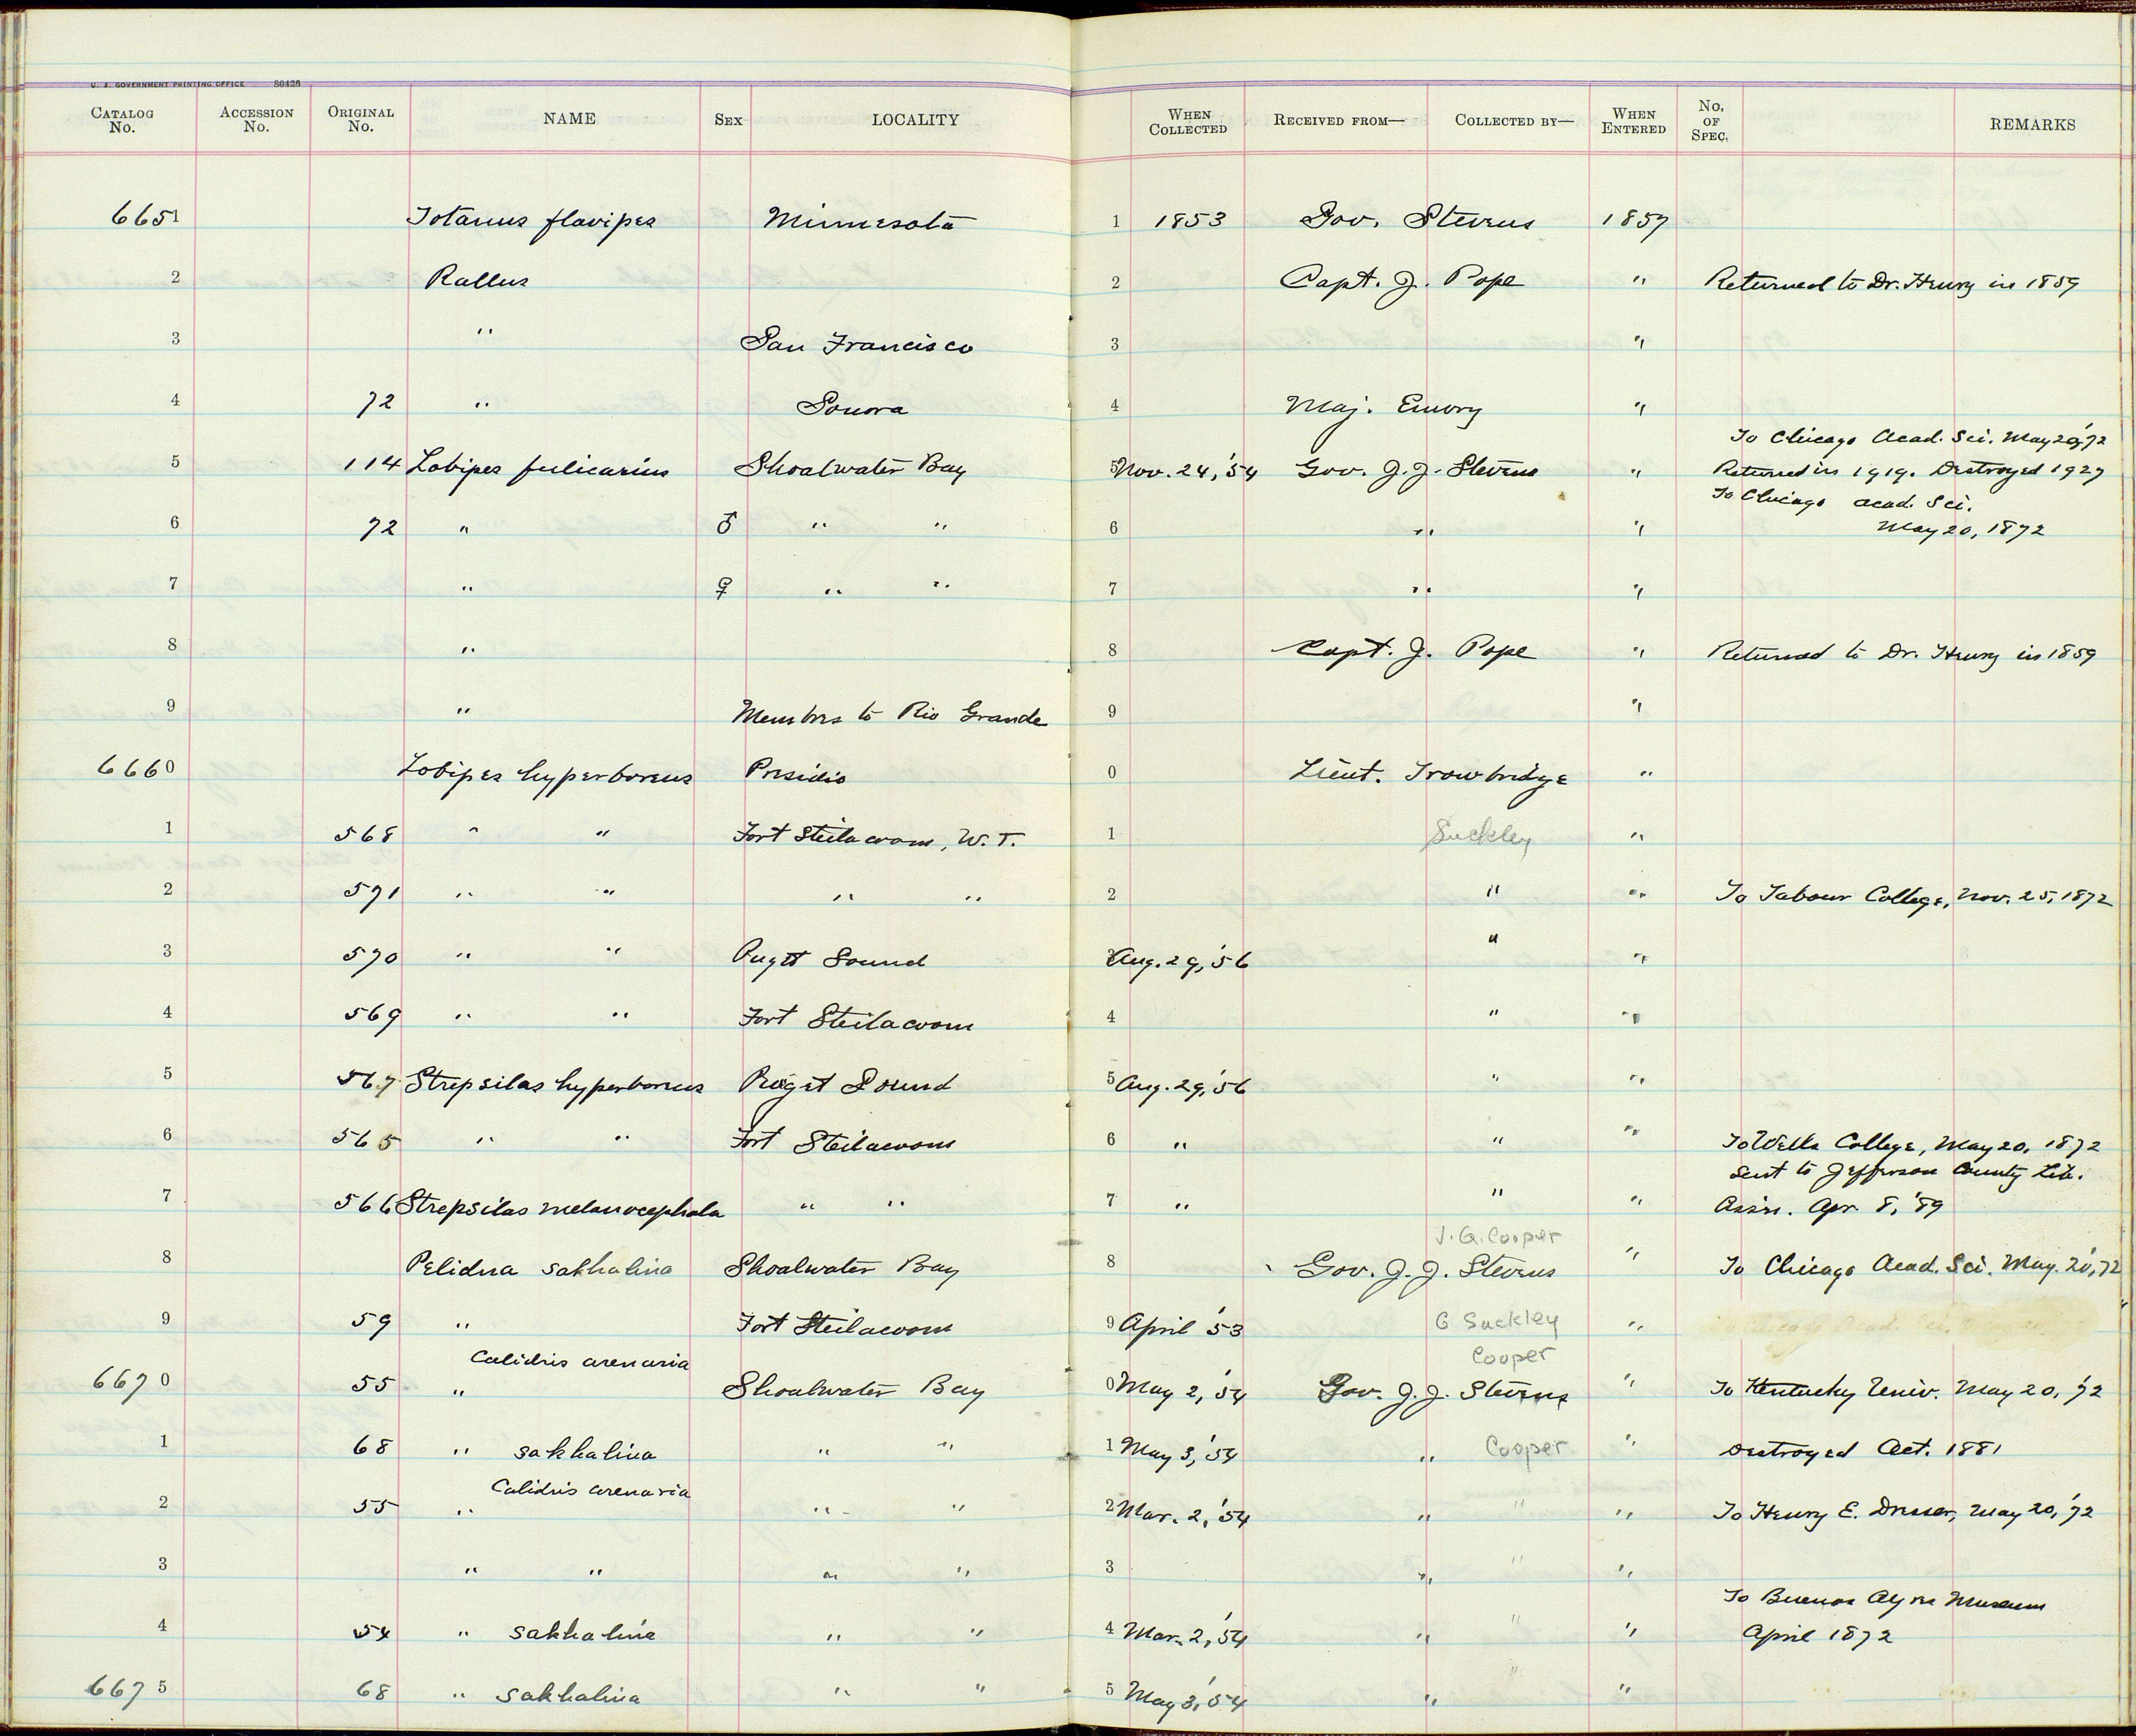 U. S. GOVERNMENT PRINTING OFFICE 86426
CATALOG No. ACCESSION No. ORIGINAL No. NAME SEX LOCALITY WHEN COLLECTED RECEIVED FROM— COLLECTED BY— WHEN ENTERED No. OF SPEC. REMARKS
6651 Totanus flavipes Minnesota 1 1853 Gov. Stevens 1857
2 Rallus 2 Capt. J. Pope " Returned to Dr. Henry in 1859
3 " San Francisco 3 "
4 72 " Sonora 4 Maj. Emory "
To Chicago Acad. Sci. May 20,'72
5 114 Lobipes fulicarius Shoalwater Bay 5 Nov. 24,'54 Gov. J. J. Stevens " Returned in 1919. Destroyed 1927
To Chicago Acad. Sci.
6 72 " ♂ " " 6 " " May 20, 1872
7 " ♀ " " 7 " "
8 " 8 Capt. J. Pope " Returned to Dr. Henry in 1859
9 " Membres to Rio Grande 9 "
6660 Lobipes hyperboreus Presidio 0 Lieut. Trowbridge "
1 568 " " Fort Steilacoom, W. T. 1 Suckley "
2 571 " " " " 2 " " To Tabour College, Nov. 25, 1872
3 570 " " Puget Sound 3 Aug. 29,'56 " "
4 569 " " Fort Steilacoom 4 " "
5 567 Strepsilas hyperboreus Puget Sound 5 Aug. 29,'56 " "
6 565 " " Fort Steilacoom 6 " " " To Wells College, May 20, 1872
Sent to Jefferson County Lib.
7 566 Strepsilas melanocephala " " 7 " " " Assn. Apr. 8, '89
J. G. Cooper
8 Pelidna sakhalina Shoalwater Bay 8 Gov. J. J. Stevens " To Chicago Acad. Sci. May. 20,'72
9 59 " Fort Steilacoom 9 April '53 G Suckley "
Calidris arenaria Cooper
6670 55 " Shoalwater Bay 0 May 2,'54 Gov. J. J. Stevens " To Kentucky Univ. May 20, '72
1 68 " sakhalina " " 1 May 3,'54 " Cooper " Destroyed Oct. 1881
Calidris arenaria
2 55 " " " 2 Mar. 2,'54 " " " To Henry E. Dresser, May 20,'72
3 " " " " 3 " " "
To Buenos Ayre Museum
4 54 " sakhalina " " 4 Mar. 2,'54 " " " April 1872
6675 68 " sakhalina " " 5 May 3,'54 " " "